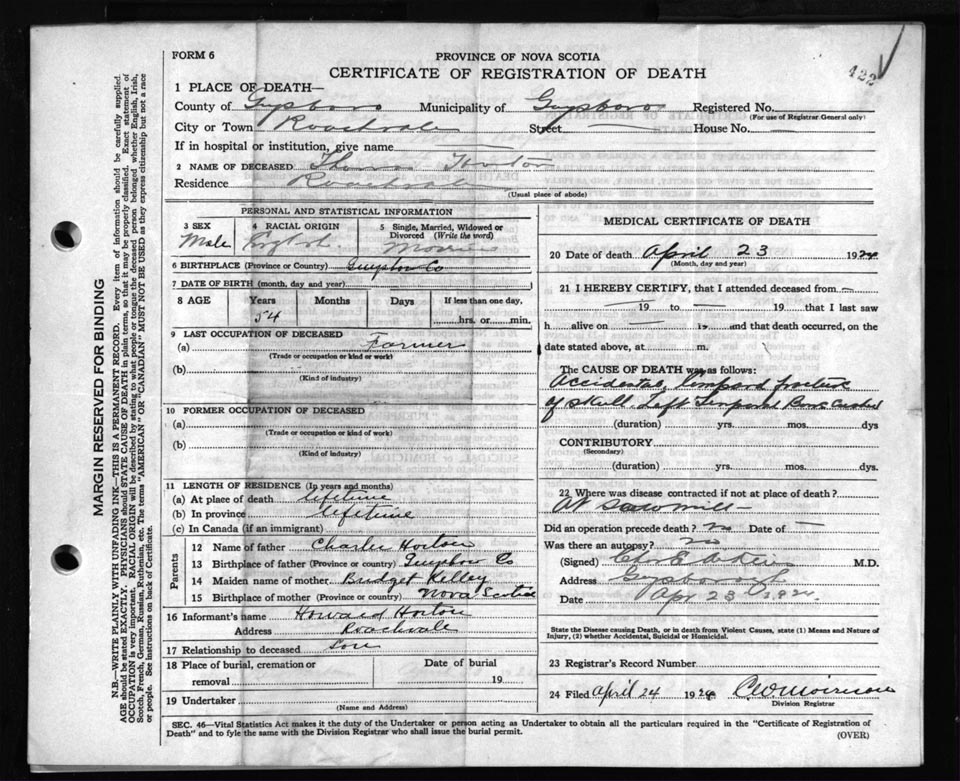 FORM 6
PROVINCE OF NOVA SCOTIA
CERTIFICATE OF REGISTRATION OF DEATH
422
1 PLACE OF DEATH—
County of Guysboro Municipality of Guysboro Registered No.
(For use of Registrar General only)
City or Town Roachvale Street House No.
If in hospital or institution, give name
2 NAME OF DECEASED Thomas Horton
Residence Roachvale
(Usual place of abode)
MARGIN RESERVED FOR BINDING
N.B.—WRITE PLAINLY WITH UNFADING INK—THIS IS A PERMANENT RECORD. Every item of information should be carefully supplied.
AGE should be stated EXACTLY. PHYSICIANS should STATE CAUSE OF DEATH in plain terms, so that it may be properly classified. Exact statement of
OCCUPATION is very important. RACIAL ORIGIN will be described by stating to what people or tongue the deceased person belonged whether English, Irish,
Scotch, French, German, Russian, Ruthenian, etc. The terms "AMERICAN" OR "CANADIAN" MUST NOT BE USED as they express citizenship but not a race
or people. See instructions on back of Certificate.
PERSONAL AND STATISTICAL INFORMATION
3 SEX
Male
4 RACIAL ORIGIN
English
5 Single, Married, Widowed or
Divorced (Write the word)
Married
6 BIRTHPLACE (Province or Country) Guysboro Co
7 DATE OF BIRTH (month, day and year)
8 AGE Years Months Days If less than one day,
54 hrs. or min.
9 LAST OCCUPATION OF DECEASED
(a) Farmer
(Trade or occupation or kind or work)
(b)
(Kind of industry)
10 FORMER OCCUPATION OF DECEASED
(a)
(Trade or occupation or kind of work)
(b)
(Kind of industry)
11 LENGTH OF RESIDENCE (In years and months)
(a) At place of death lifetime
(b) In province lifetime
(c) In Canada (if an immigrant)
Parents
12 Name of father Charles Horton
13 Birthplace of father (Province or country) Guysboro Co
14 Maiden name of mother Bridget Kelley
15 Birthplace of mother (Province or country) Nova Scotia
16 Informant's name Howard Horton
Address Roachvale
17 Relationship to deceased Son
18 Place of burial, cremation or
removal
Date of burial
19
19 Undertaker
(Name and Address)
MEDICAL CERTIFICATE OF DEATH
20 Date of death April 23 192
(Month, day and year)
21 I HEREBY CERTIFY, that I attended deceased from —
19 to 19 that I last saw
h alive on 19 and that death occurred, on the
date stated above, at m.
The CAUSE OF DEATH was as follows:
Accidental, compound fracture
of skull. Left Temporal Bone Crushed
(duration) yrs. mos. dys
CONTRIBUTORY
(Secondary)
(duration) yrs. mos. dys.
22 Where was disease contracted if not at place of death?
At Sawmill—
Did an operation precede death? no Date of —
Was there an autopsy? no
(Signed) M.D.
Address Guysboro
Date Apr 23
State the Disease causing Death, or in death from Violent Causes, state (1) Means and Nature of
Injury, (2) whether Accidental, Suicidal or Homicidal.
23 Registrar's Record Number
24 Filed April 24 192
Division Registrar
SEC. 46—Vital Statistics Act makes it the duty of the Undertaker or person acting as Undertaker to obtain all the particulars required in the "Certificate of Registration of
Death" and to fyle the same with the Division Registrar who shall issue the burial permit.
(OVER)